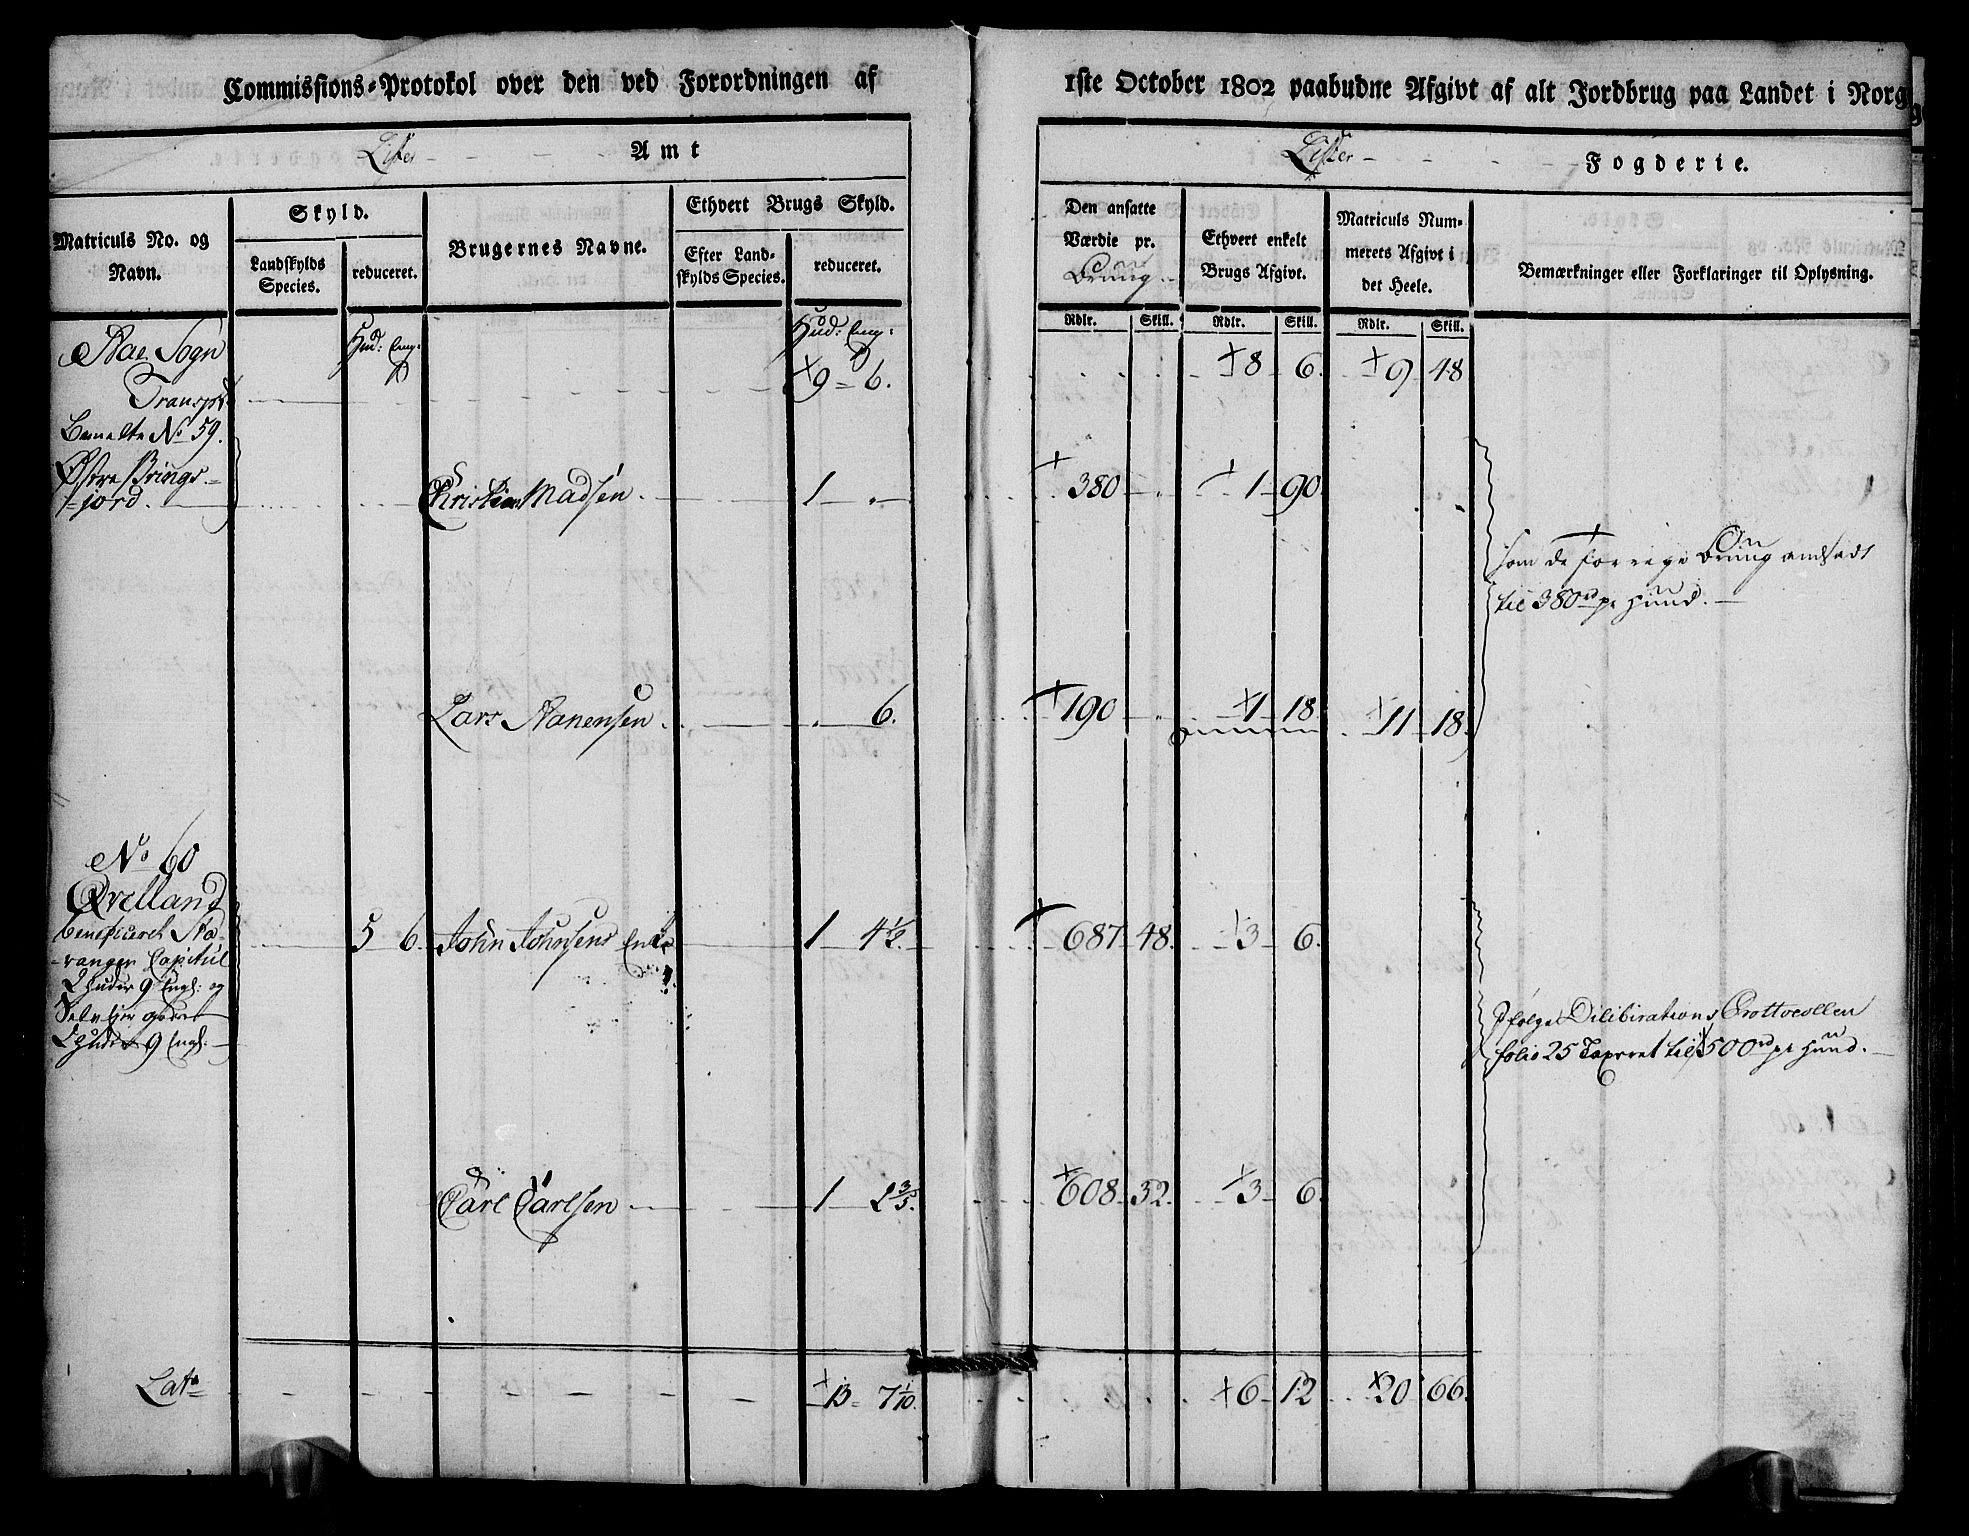 Commissions-Protokol over den ved Forordningen af 1ste October 1802 paabudne Afgivt af alt Jordbrug paa Landet i Norg
Lister Amt
Lister Fogderie.
Matriculs No. og Navn.
Skyld.
Landskylds Species.
reduceret.
Brugernes Navne.
Ethvert Brugs Skyld.
Efter Landskylds Species.
reduceret.
Den ansatte Værdie pr. Bruug.
Ethvert enkelt Brugs Afgivt.
Matriculs Nummerets Afgivt i det Heele.
Bemærkninger eller Forklaringer til Oplysning.
Rdlr. Skill. Rdlr. Skill. Rdlr. Skill.
Hud: Eng: Hud: Eng:
Sogn
Transpt 9 = 6. 8 6. 9 48
No 59.
Østre Brings-
jord. Christian Madsen. 1 380 1 90
som de forrige Bruug andsadt
til 380rd pr Huud.
Lars 6. 190 1 18 11 18
No 60
Qvelland
beneficeret
Capitul
2 Huder 9 Engl: og
Selv Ejer
2 Huder 9 Engl:
5 6. John Johnsens Enke 1 4½. 687 48 3 6.
Ifølge Dilibirations Prottocollen
folio 25 Taxeret til 500rd pr Huud.
Carl Carlsen 1 2 3/5. 608 32 3 6.
Lat 13 7 1/10. 6 12 20 66.